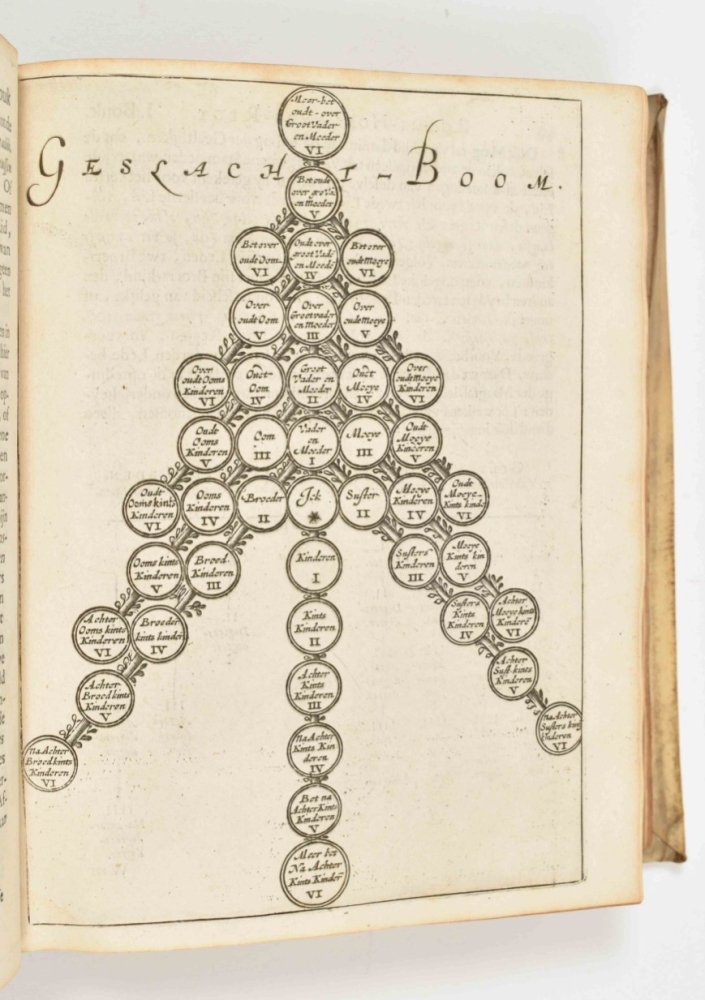 Meer-bet
oudt-over
Groot Vader
en Moeder
VI
GESLACHT-BOOM.
Bet oude
over gro Va.
en Moeder
V
Bet over
oude Oom
VI
Oude over
groot Vade
en Moede
IV
Bet over
oude Moeye
VI
Over
oude Oom
V
Over
Grootvader
en Moeder
III
Over
oude Moeye
V
Over
oudt Ooms
Kinderen
VI
Oudt-
Oom
IV
Groot
Vader en
Moeder
II
Oudt
Moeye
IV
Over
oude Moeye
Kinderen
VI
Oudt
Ooms
Kinderen
V
Oom
III
Vader
en
Moeder
I
Moeye
III
Oudt
Moeye
Kinderen
V
Oudt
Ooms kints
Kinderen
VI
Ooms
Kinderen
IV
Broeder
II
Ick
Suster
II
Moeye
Kinderen
IV
Oudt
Moeye-
Kints kinde
VI
Ooms kints
Kinderen
V
Broed.
Kinderen
III
Kinderen
I
Susters
Kinderen
III
Moeye
Kints kin
deren
V
Achter
Ooms kints
Kinderen
VI
Broeder
kints kinder
IV
Kints
Kinderen
II
Susters
Kints
Kinderen
IV
Achter
Moeye kints
Kindere
VI
Achter
Broed kints
Kinderen
V
Achter
Kints
Kinderen
III
Achter
Sust. kints
Kinderen
V
Na Achter
Broed kints
Kinderen
VI
Na Achter
Kints Kin
deren
IV
Na Achter
Susters kints
Kinderen
VI
Bet na
Achter Kints
Kinderen
V
Meer bet
Na Achter
Kints Kinder
VI